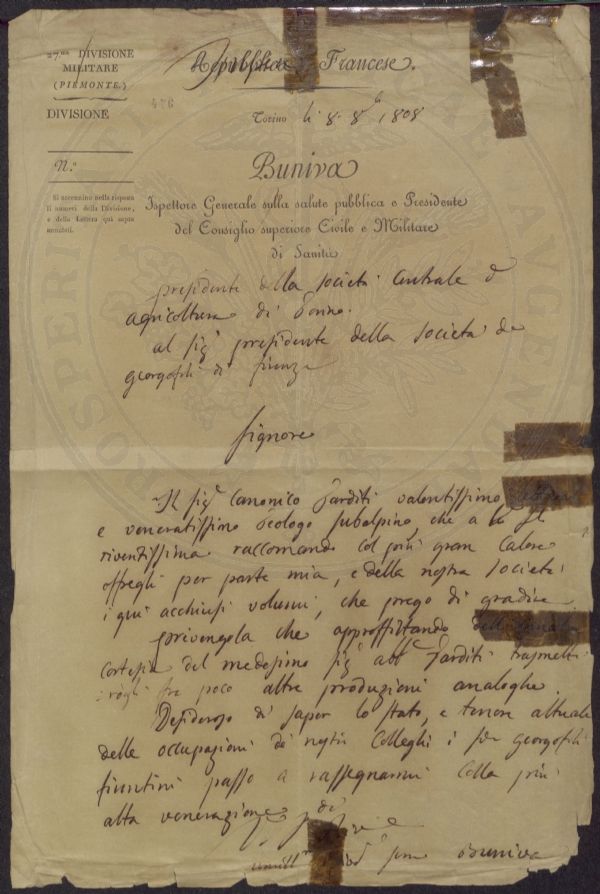 27.ma DIVISIONE
MILITARE
(PIEMONTE.)
DIVISIONE
N.o
Si accennino nella risposta
il numeri della Divisione,
e della Lettera qui sopra
notati.
Repubblica Francese.
Torino li 8. 8b 1808
Buniva
Ispettore Generale sulla salute pubblica e Presidente
del Consiglio superiore Civile e Militare
di Sanità
presidente della società centrale d
agricoltura di Torino.
al sig presidente della società de
georgofili di firenze
Signore
Il sig canonico Tarditi valentissimo
e veneratissimo teologo subalpino, che a
riventissima raccomando col più gran calore
offregli per parte mia, e della nostra società
i qui acchiusi volumi, che prego di gradire
privengola che approffittando dell
cortesia del medesimo sig abb Tarditi, trasmett
tra poco altre produzioni analoghe.
Desideroso di saper lo stato, e tenore attuale
delle occupazioni de nostri Colleghi i georgofili
fiorentini passo a rassegnarmi colla più
alta venerazione di
Buniva